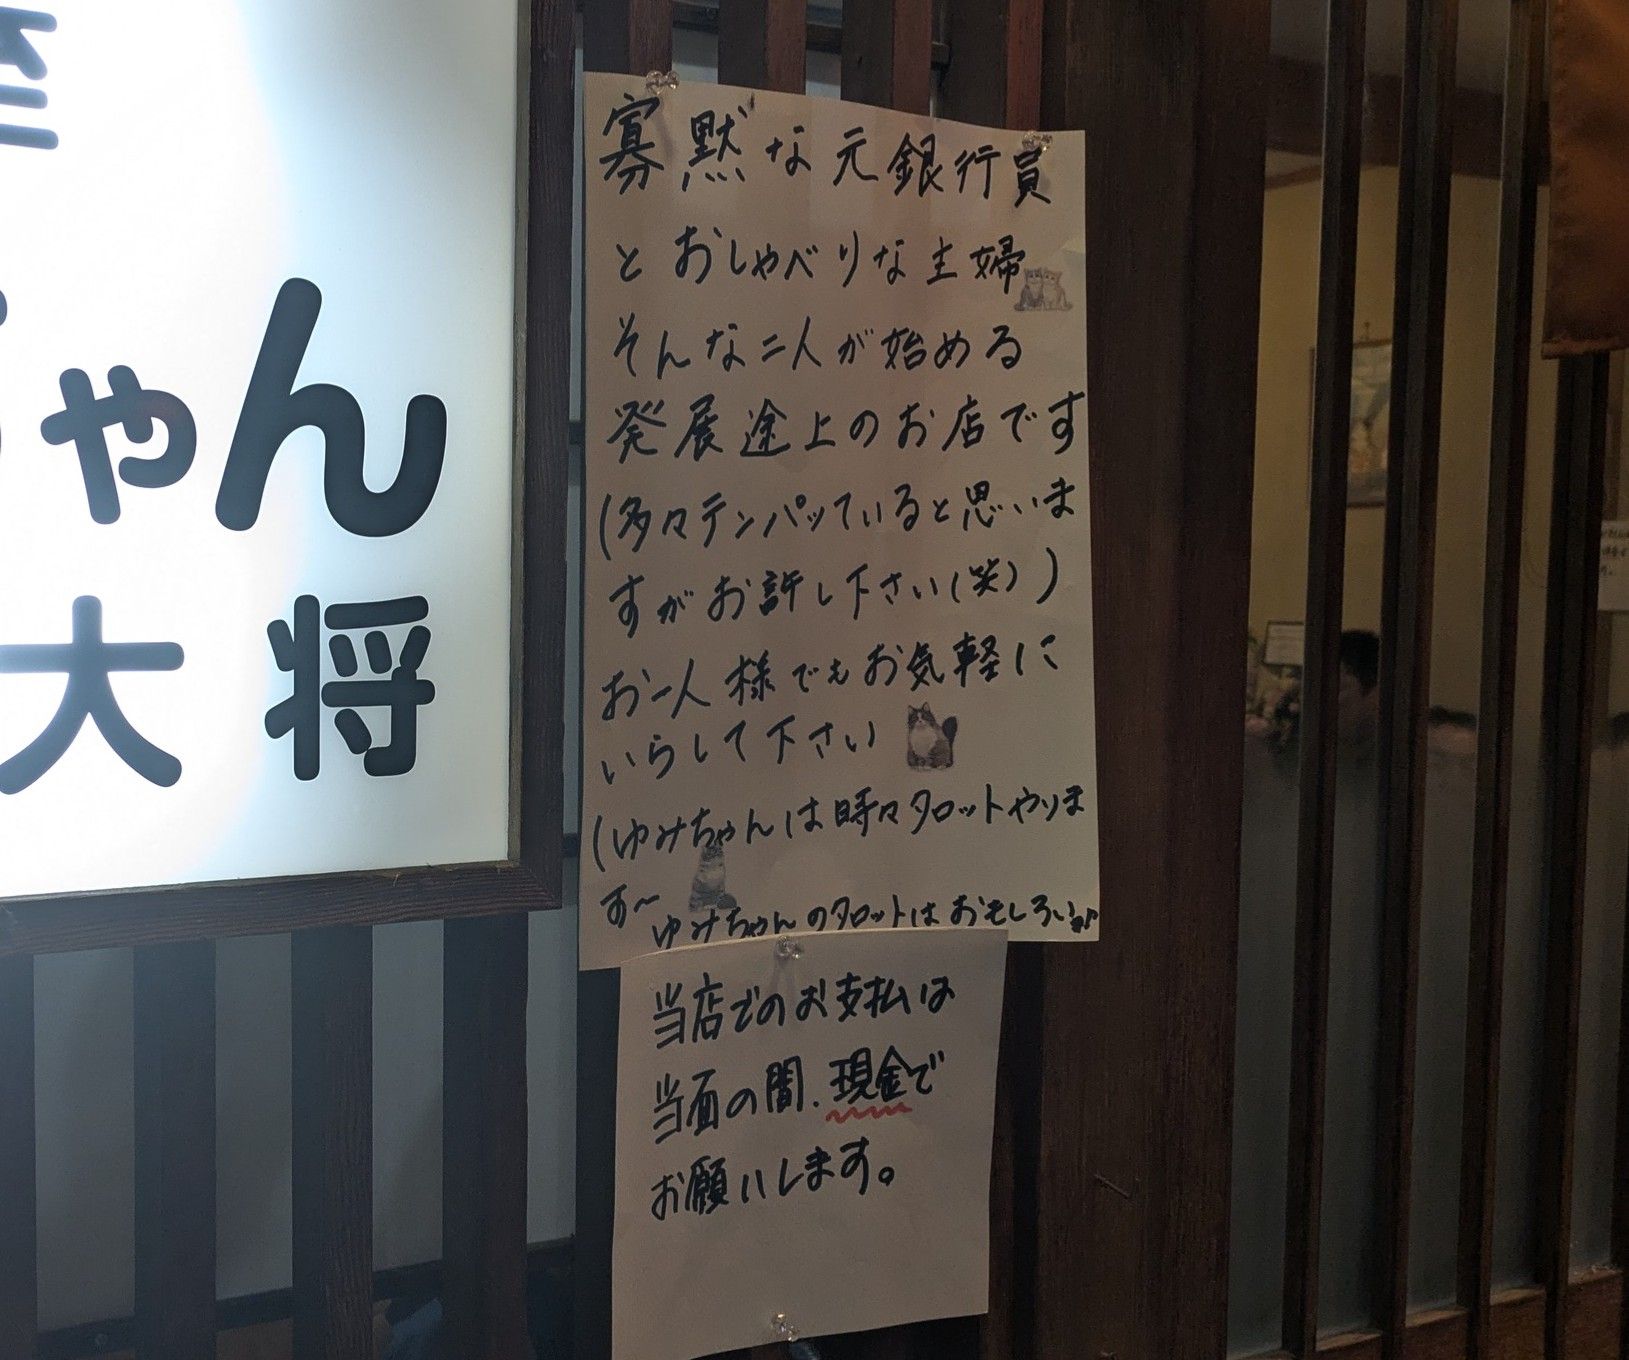 ちゃん
大将
寡黙な元銀行員
とおしゃべりな主婦
そんな二人が始める
発展途上のお店です
(多々テンパッていると思いま
すがお許し下さい(笑))
お一人様でもお気軽に
いらして下さい
(ゆみちゃんは時々タロットやりま
す〜
ゆみちゃんのタロットはおもしろい♪
当店でのお支払は
当面の間、現金で
お願いします。